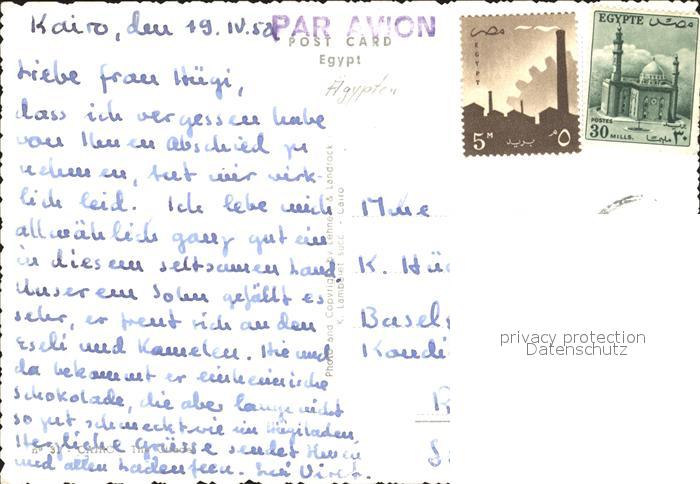 Kairo, den 19. IV. 58
PAR AVION
POST CARD
Egypt
Ägypten
Liebe Frau Hügi,
dass ich vergessen habe
von Ihnen Abschied zu
nehmen, tut mir wirk-
lich leid. Ich lebe mich
allmählich ganz gut ein
in diesem seltsamen Land.
Unserem Sohn gefällt es
sehr, er freut sich an den
Eseli und Kamelen. Hie und
da bekommt er einheimische
Schokolade, die aber lange nicht
so gut schmeckt wie im Hügiladen.
Herzliche Grüsse sendet Ihnen
und allen Ladenfeen. Ihr
Photo and Copyright by Lehnert & Landrock
K. Lambelet succ. - Cairo
Mme
K. Hü
Basels
Kondi
EGYPT
مصر
5M
بريد
٥م
EGYPTE
مصر
POSTES
30 MILLS.
٣٠
privacy protection
Datenschutz